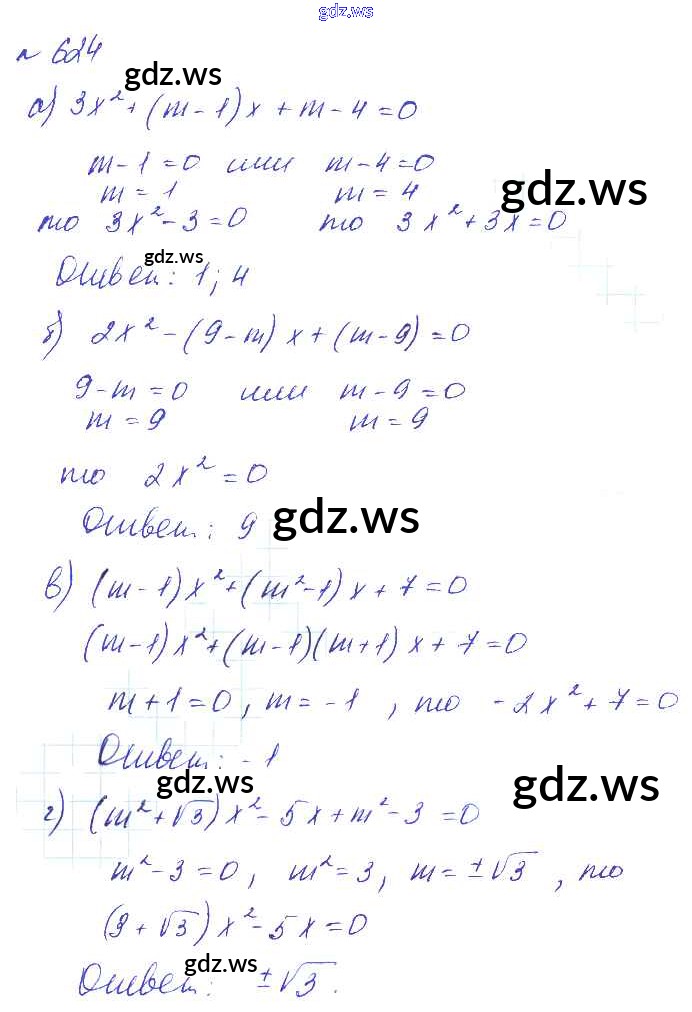 gdz.ws
№ 624
gdz.ws
а) 3x² + (m - 1)x + m - 4 = 0
m - 1 = 0 или m - 4 = 0
m = 1 m = 4
gdz.ws
то 3x² - 3 = 0 то 3x² + 3x = 0
gdz.ws
Ответ: 1; 4
б) 2x² - (9 - m)x + (m - 9) = 0
9 - m = 0 или m - 9 = 0
m = 9 m = 9
то 2x² = 0
Ответ: 9
gdz.ws
в) (m - 1)x² + (m² - 1)x + 7 = 0
(m - 1)x² + (m - 1)(m + 1)x + 7 = 0
m + 1 = 0, m = -1, то -2x² + 7 = 0
Ответ: -1
gdz.ws
gdz.ws
г) (m² + √3)x² - 5x + m² - 3 = 0
m² - 3 = 0, m² = 3, m = ±√3, то
(3 + √3)x² - 5x = 0
gdz.ws
Ответ: ±√3.